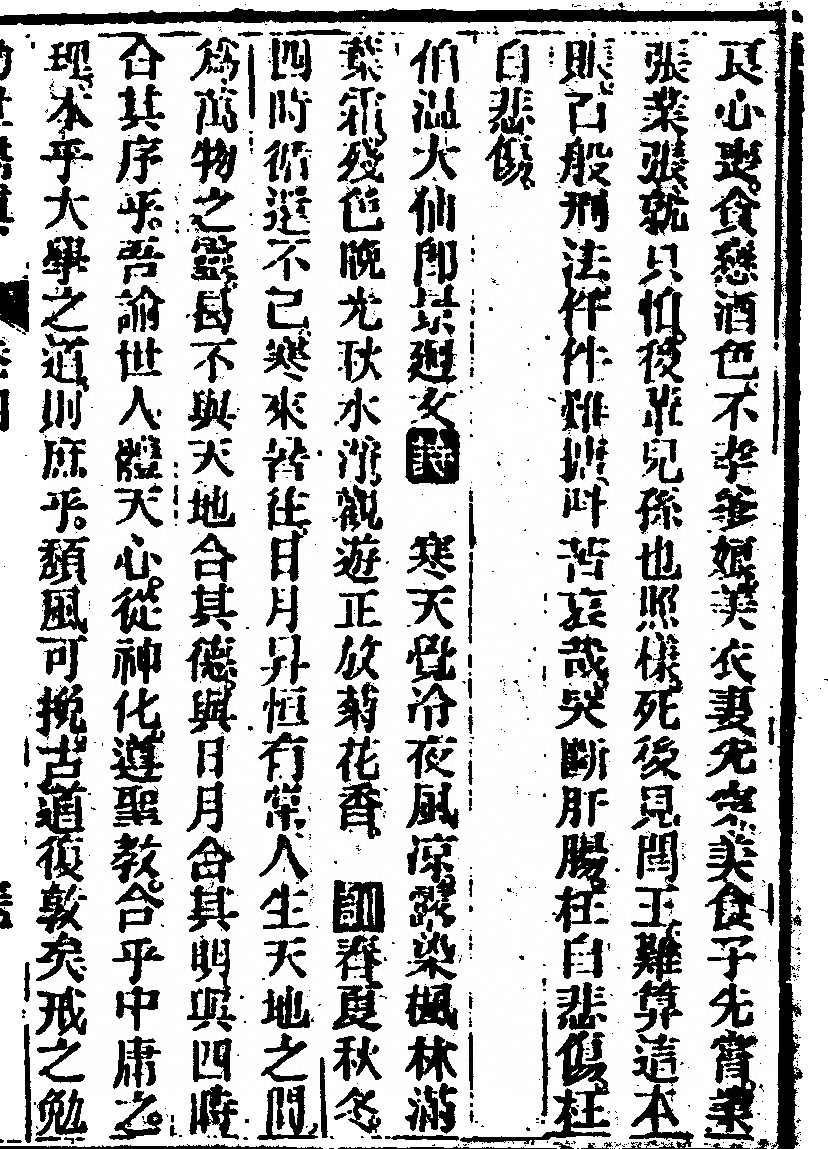 良心喪貪戀酒色不孝爹娘美衣妻先穿美食子先嘗業
張業張就只怕後輩兒孫也照樣死後見閻王難算這本
賬百般刑法件件難搪叫苦哀哉哭斷肝腸枉自悲傷枉
自悲傷
伯温大仙郎景迴文詩 寒天覺冷夜風凉露染楓林滿
葉霜殘色晚光秋水淨觀遊正放菊花香 訓 春夏秋冬
四時循還不已寒來暑往日月升恒有常人生天地之間
爲萬物之靈曷不與天地合其德與日月合其明與四時
合其序乎吾諭世人體天心從神化遵聖教合乎中庸之
理本乎大學之道則庶乎頹風可挽古道復敦矣戒之勉